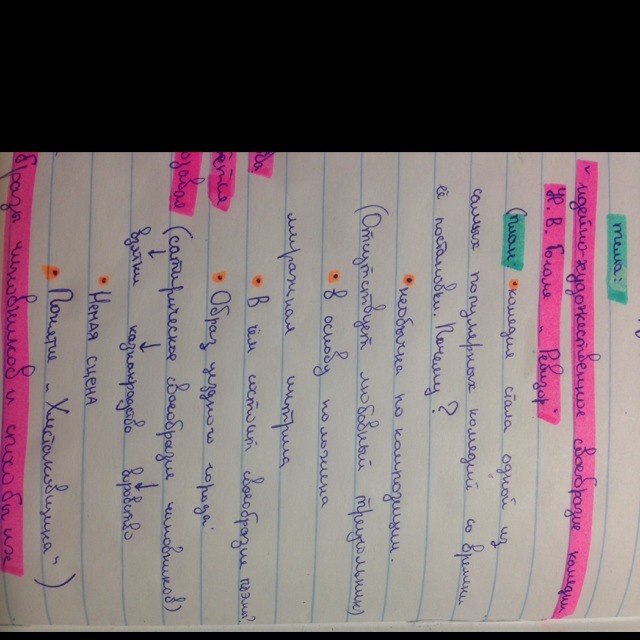 тема:
"идейно-художественное своеобразие комедии
Н. В. Гоголя "Ревизор"
(план: • комедия стала одной из
самых популярных комедий со времени
её постановки. Почему?
• необычна по композиции.
(Отсутствует любовный треугольник)
• В основу положена
миражная интрига
• В чём состоит своеобразие поэмы?
• Образ уездного города.
(сатирическое своеобразие чиновников)
взятки казнокрадство воровство
• Немая сцена
• Понятие "Хлестаковщина")
образы чиновников и способы их